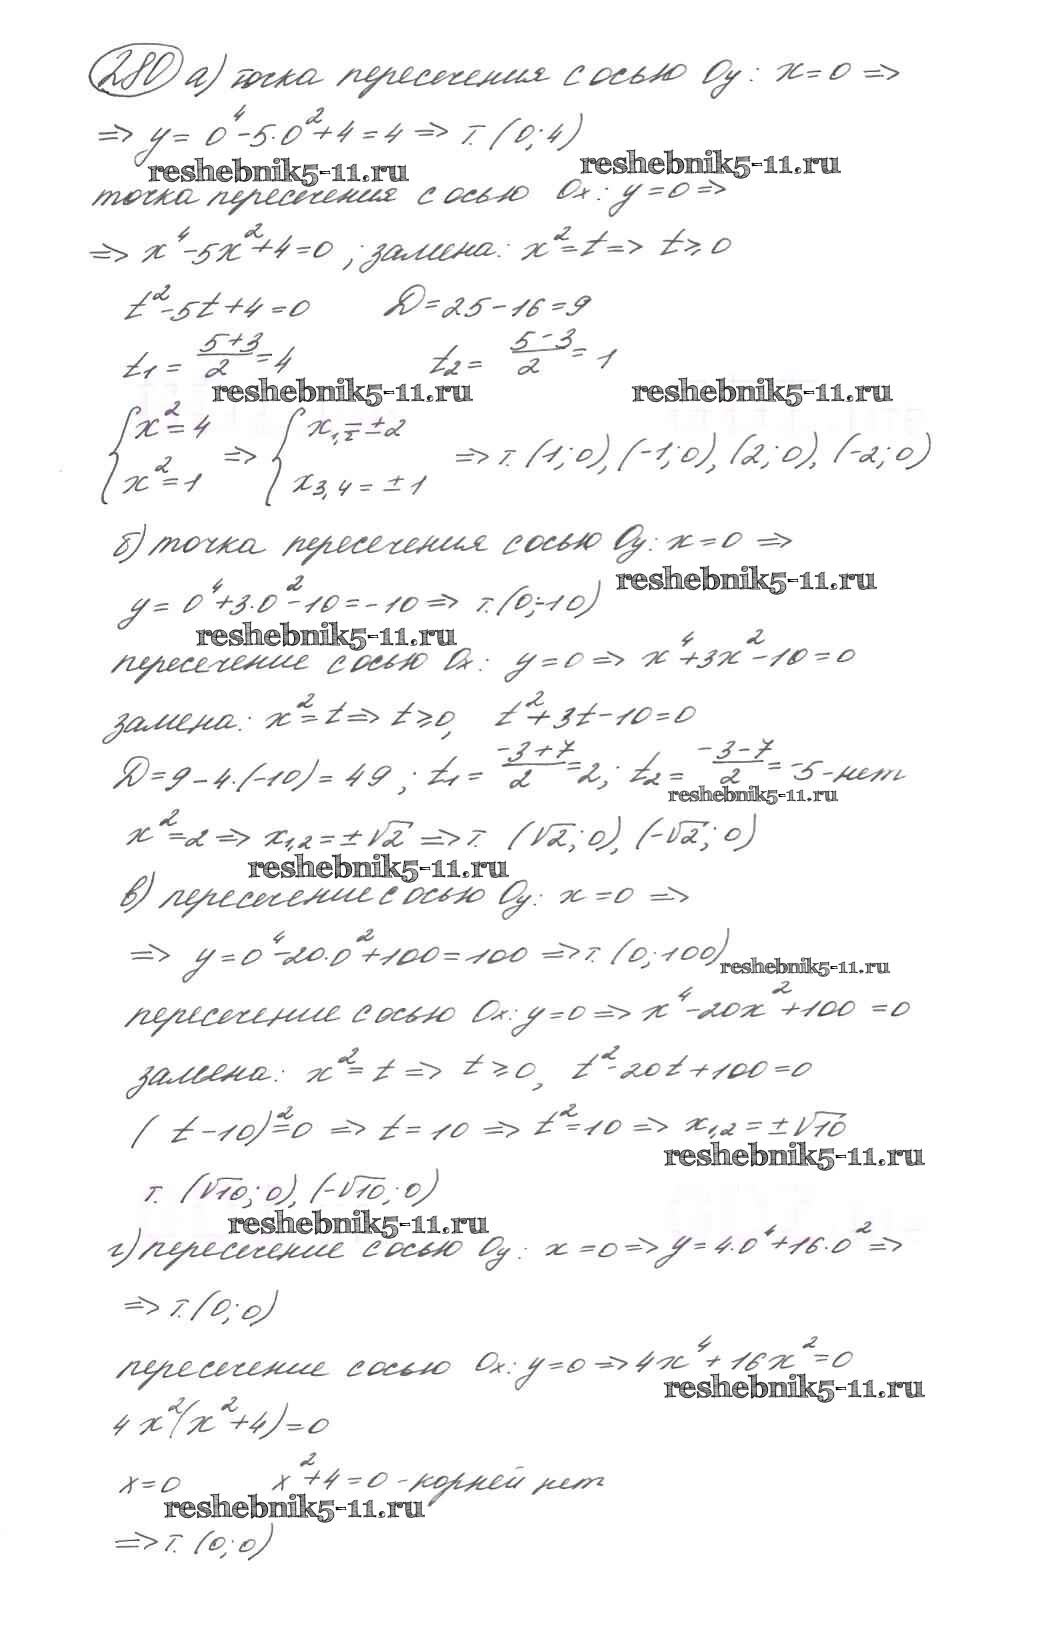 280 а) точка пересечения с осью Oy: x=0 =>
=> y= 0⁴-5·0²+4=4 => т. (0; 4)
reshebnik5-11.ru reshebnik5-11.ru
точка пересечения с осью Ox: y=0 =>
=> x⁴-5x²+4=0 ; замена: x²=t => t≥0
t²-5t+4=0 D=25-16=9
t₁ = (5+3)/2 =4 t₂ = (5-3)/2 = 1
reshebnik5-11.ru reshebnik5-11.ru
{ x²=4 => { x₁,₂=±2 => т. (1; 0), (-1; 0), (2; 0), (-2; 0)
{ x²=1 { x₃,₄=±1
б) точка пересечения с осью Oy: x=0 =>
reshebnik5-11.ru
y= 0⁴+3·0²-10=-10 => т. (0;-10)
reshebnik5-11.ru
пересечение с осью Ox: y=0 => x⁴+3x²-10=0
замена: x²=t => t≥0, t²+3t-10=0
D=9-4·(-10)=49 ; t₁ = (-3+7)/2 =2; t₂ = (-3-7)/2 = -5-нет
reshebnik5-11.ru
x²=2 => x₁,₂=±√2 => т. (√2; 0), (-√2; 0)
reshebnik5-11.ru
в) пересечение с осью Oy: x=0 =>
=> y=0⁴-20·0²+100=100 => т. (0; 100)
reshebnik5-11.ru
пересечение с осью Ox: y=0 => x⁴-20x²+100=0
замена: x²=t => t≥0, t²-20t+100=0
(t-10)²=0 => t=10 => t²=10 => x₁,₂=±√10
reshebnik5-11.ru
т. (√10; 0), (-√10; 0)
reshebnik5-11.ru
г) пересечение с осью Oy: x=0 => y=4·0⁴+16·0² =>
=> т. (0; 0)
пересечение с осью Ox: y=0 => 4x⁴+16x²=0
reshebnik5-11.ru
4x²(x²+4)=0
x=0 x²+4=0 - корней нет
reshebnik5-11.ru
=> т. (0; 0)